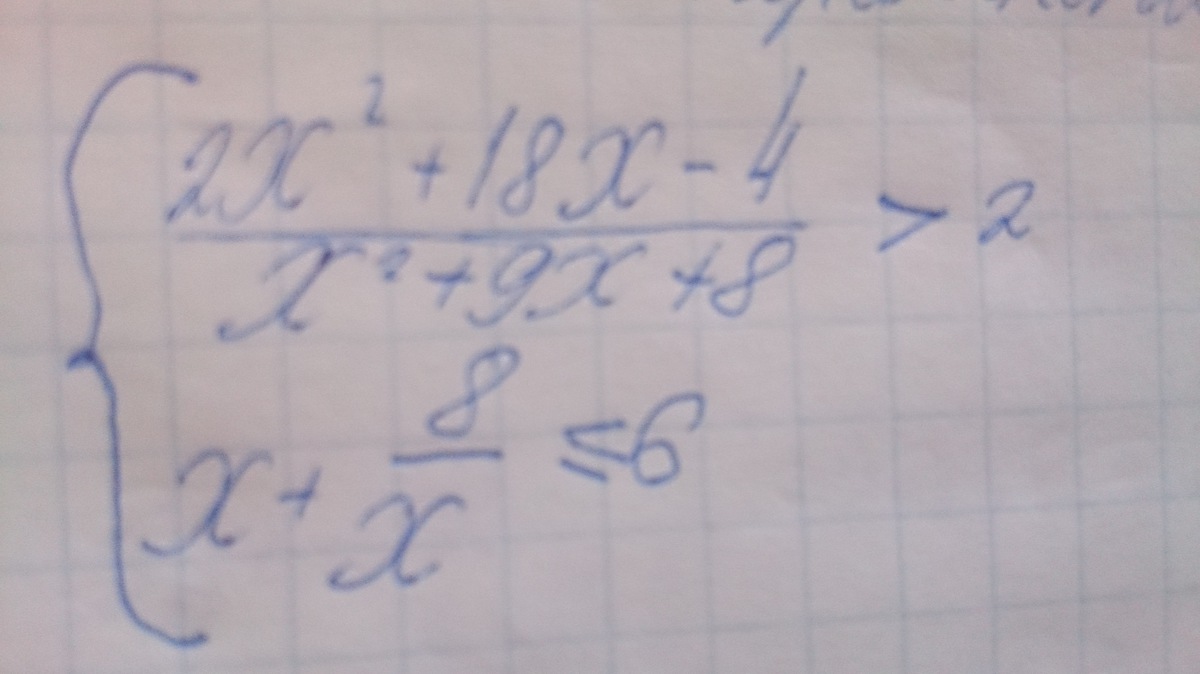 2x² + 18x - 4
x² + 9x + 8
> 2
x + 8/x ≤ 6